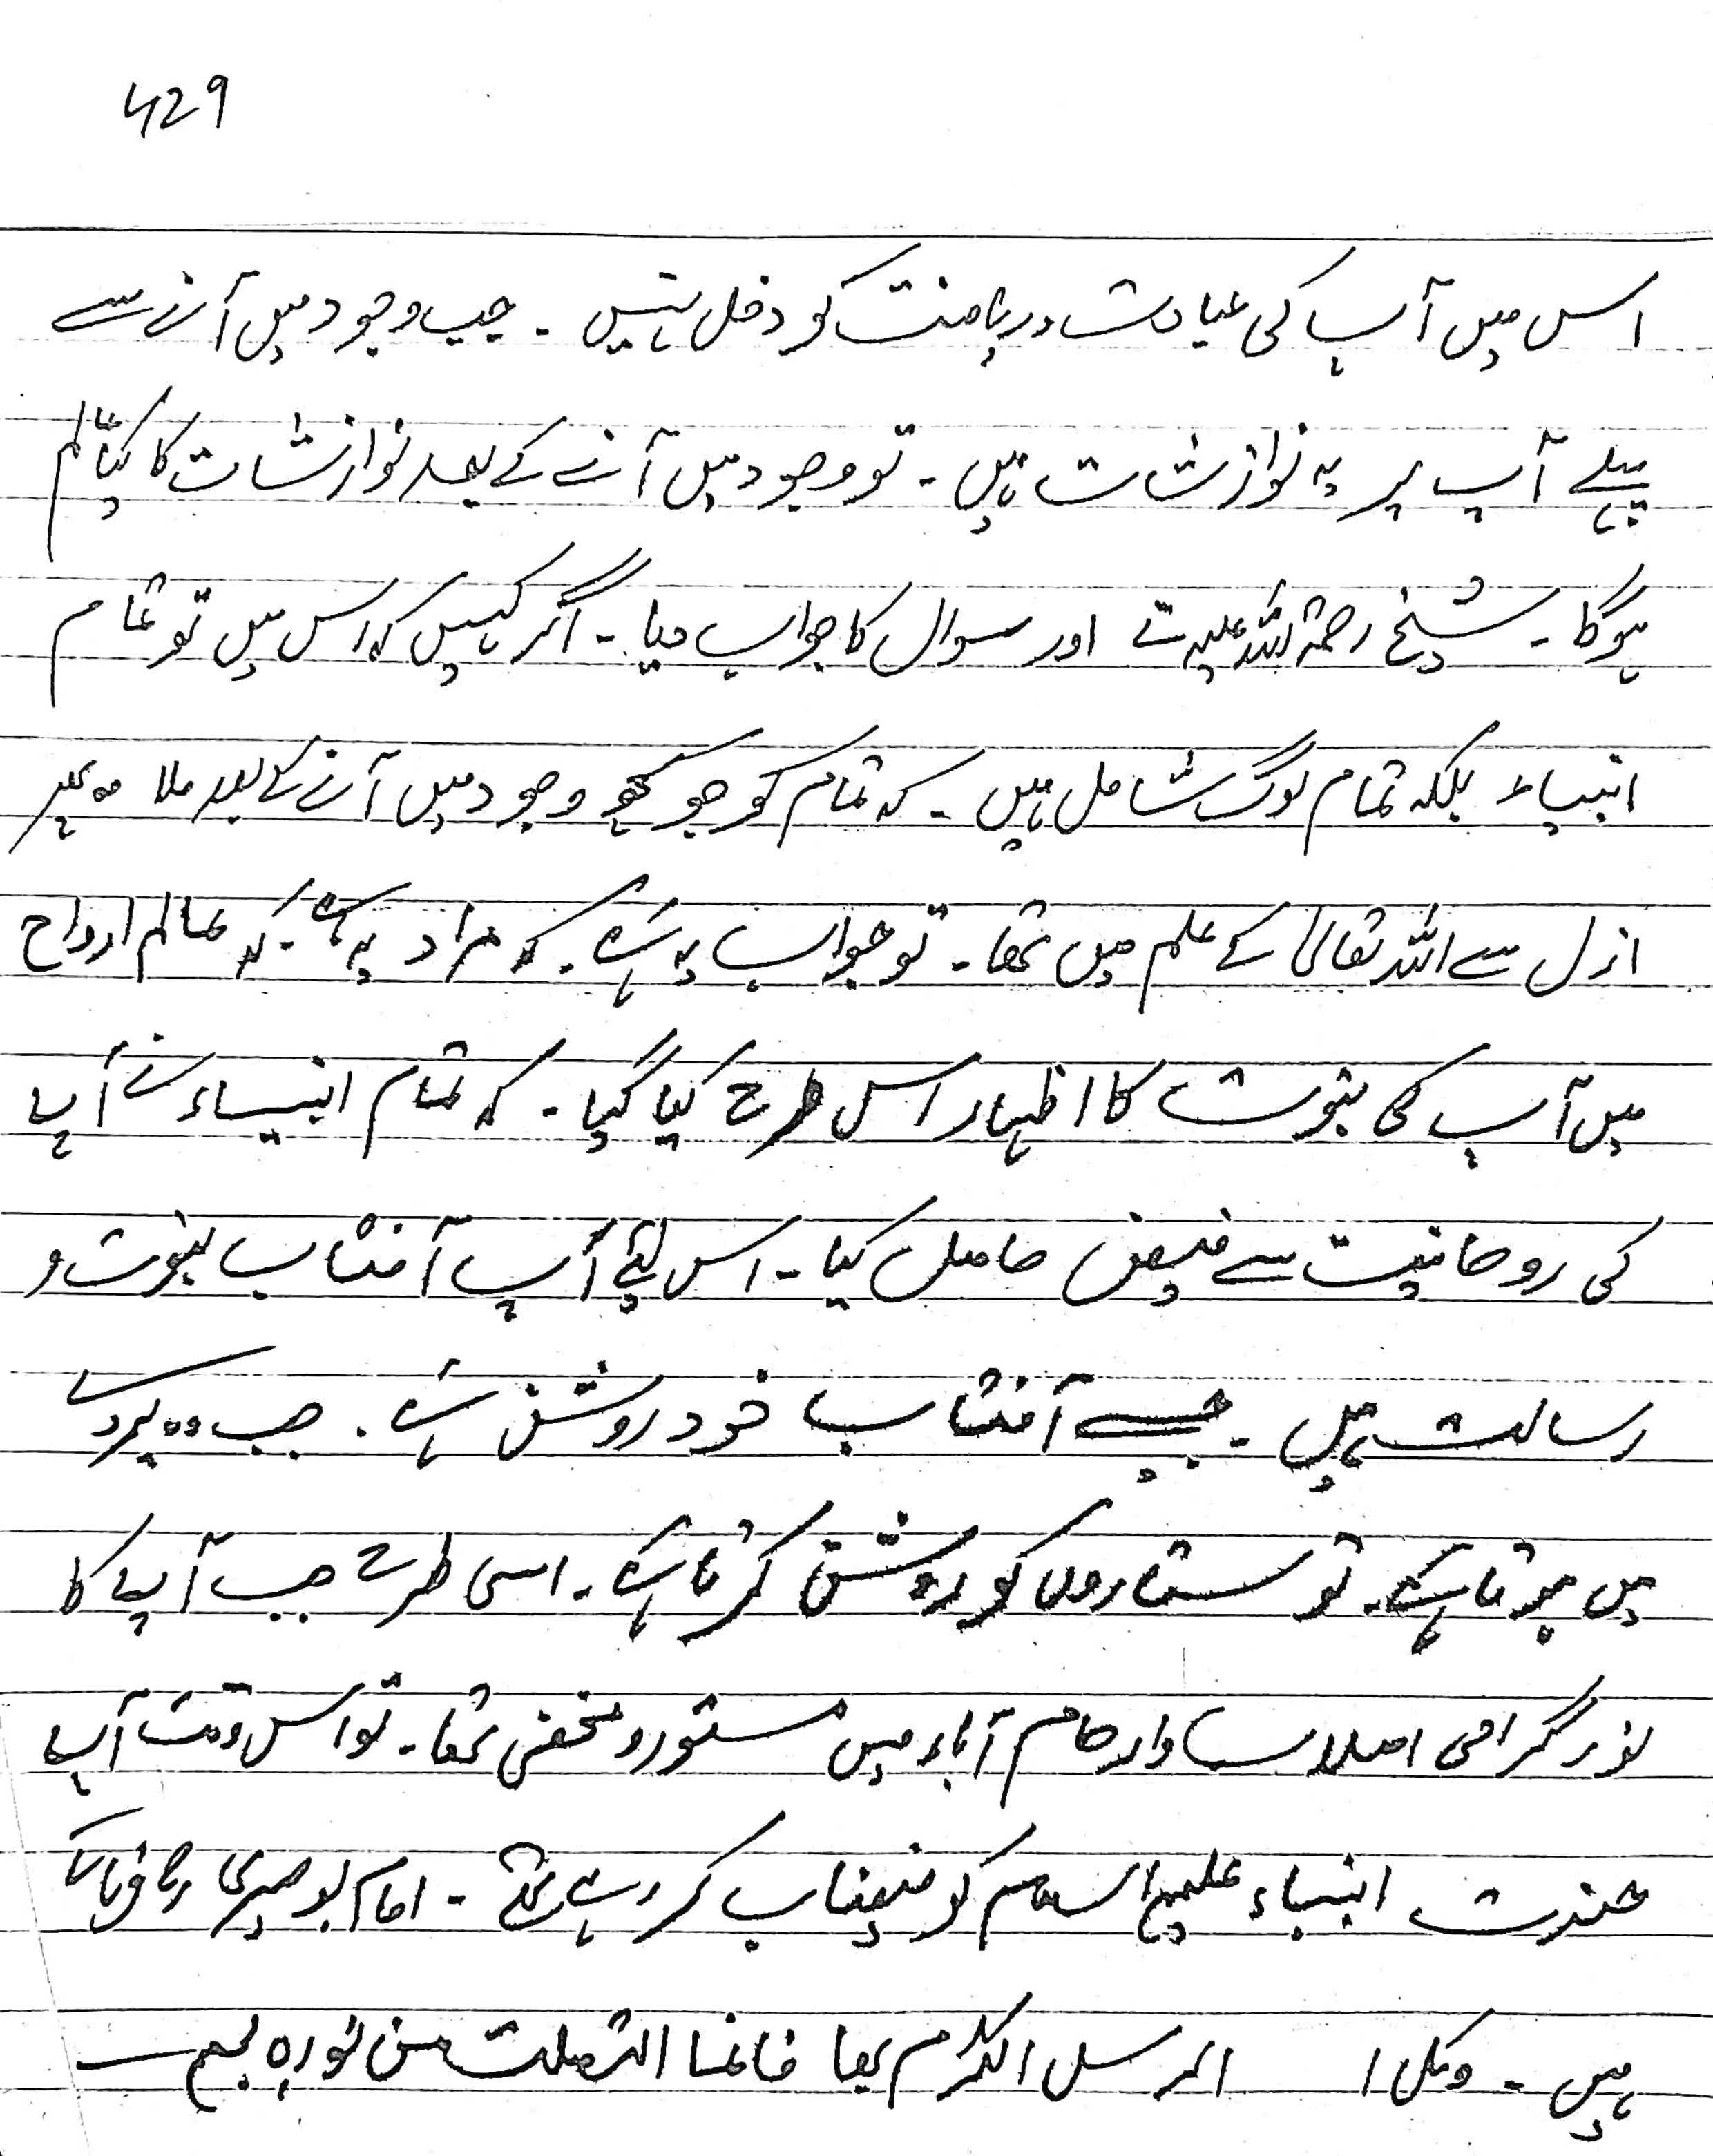 429
اس میں آپ کی عبادت و ریاضت کو دخل نہیں ۔ جب وجود میں آنے سے
پہلے آپ پر یہ نوازشات ہیں ۔ تو وجود میں آنے کے بعد نوازشات کا کیا عالم
ہوگا ۔ شیخ رحمۃ اللہ علیہ نے اور سوال کا جواب دیا ۔ اگر کہیں کہ اس میں تو تمام
انبیاء بلکہ تمام لوگ شامل ہیں ۔ کہ تمام کو جو کچھ وجود میں آنے کے بعد ملا وہ
ازل سے اللہ تعالیٰ کے علم میں تھا ۔ تو جواب یہ ہے ۔ کہ مراد یہ ہے ۔ کہ عالم ارواح
میں آپ کی نبوت کا اظہار اس طرح کیا گیا ۔ کہ تمام انبیاء نے آپ
کی روحانیت سے فیض حاصل کیا ۔ اس لئے آپ آفتاب نبوت و
رسالت ہیں ۔ جیسے آفتاب خود روشن ہے ۔ جب وہ پردے
میں ہوتا ہے ۔ تو ستاروں کو روشن کرتا ہے ۔ اسی طرح جب آپ کا
نور گرامی اصلاب و ارحام آباء میں مستور و مخفی تھا ۔ تو اس وقت آپ
حضرت انبیاء علیہم السلام کو فیضاب کر رہے تھے ۔ امام بوصیری رح فرماتے
ہیں ۔ وکل ا الرسل الکرام بھا فانما اتصلت من نورہ بھم